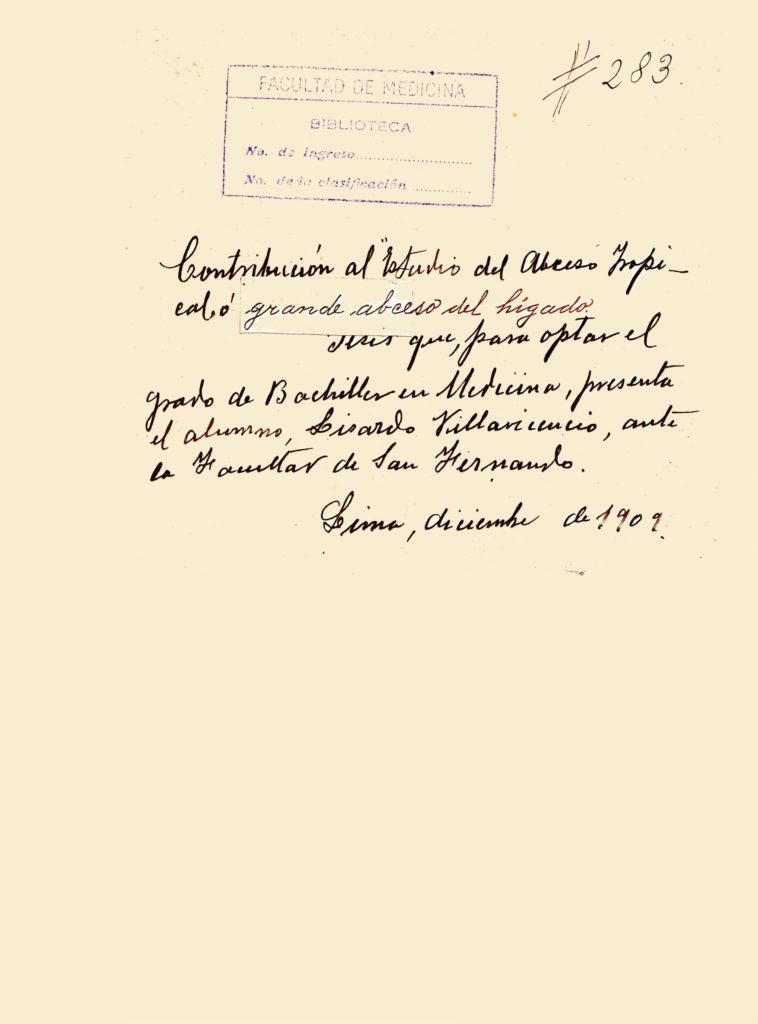 # 283.
FACULTAD DE MEDICINA
BIBLIOTECA
No. de ingreso....................
No. de la clasificación ............
Contribución al "Estudio del Abceso Tropi-
cal ó grande abceso del hígado.
Tesis que, para optar el
grado de Bachiller en Medicina, presenta
el alumno, Lisardo Villavicencio, ante
la Facultad de San Fernando.
Lima, diciembre de 1909.